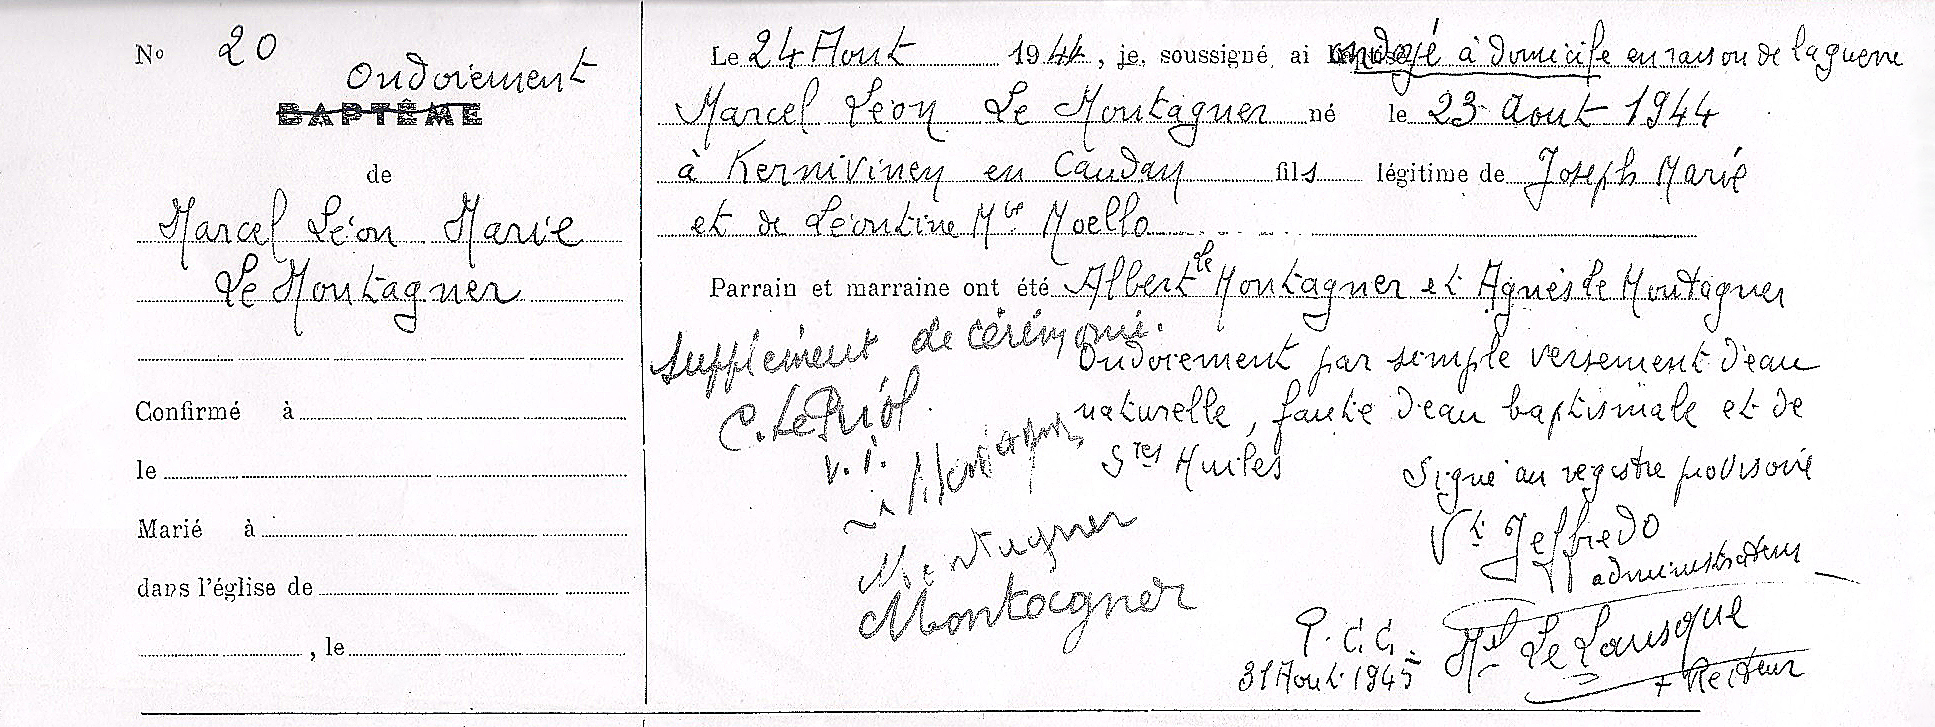 No 20
Ondoiement
BAPTÊME
de
Marcel Léon Marie
Le Montagner
Confirmé à
le
Marié à
dans l'église de
, le
Le 24 Aout 1944, je, soussigné ai ondoyé à domicile en raison de la guerre
Marcel Léon Le Montagner né le 23 Aout 1944
à Kerniviney en Caudan fils légitime de Joseph Marie
et de Léontine Mie Moello
Parrain et marraine ont été Albert le Montagner et Agnès le Montagner
Supplément de cérémonie.
Ondoiement par simple versement d'eau
naturelle, faute d'eau baptismale et de
Stes Huiles
C. Le Priol.
v. i.
Signé au registre provisoire
Vt Jeffredo
administrateur
Montagner
Montagner
P.C.C.
31 Aout 1945
Mel Le Lausque
Recteur